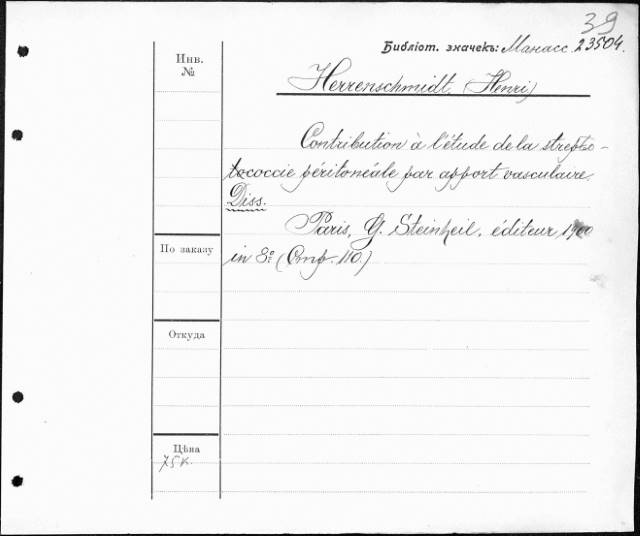 39
Библіот. значекъ: Манасс. 23504.
Инв.
№
Herrenschmidt (Henri)
Contribution à l'étude de la strepto-
coccie péritonéale par apport vasculaire.
Diss.
Paris, G. Steinheil, éditeur, 1900
По заказу
in 8º. (Стр. 110.)
Откуда
Цѣна
75 к.